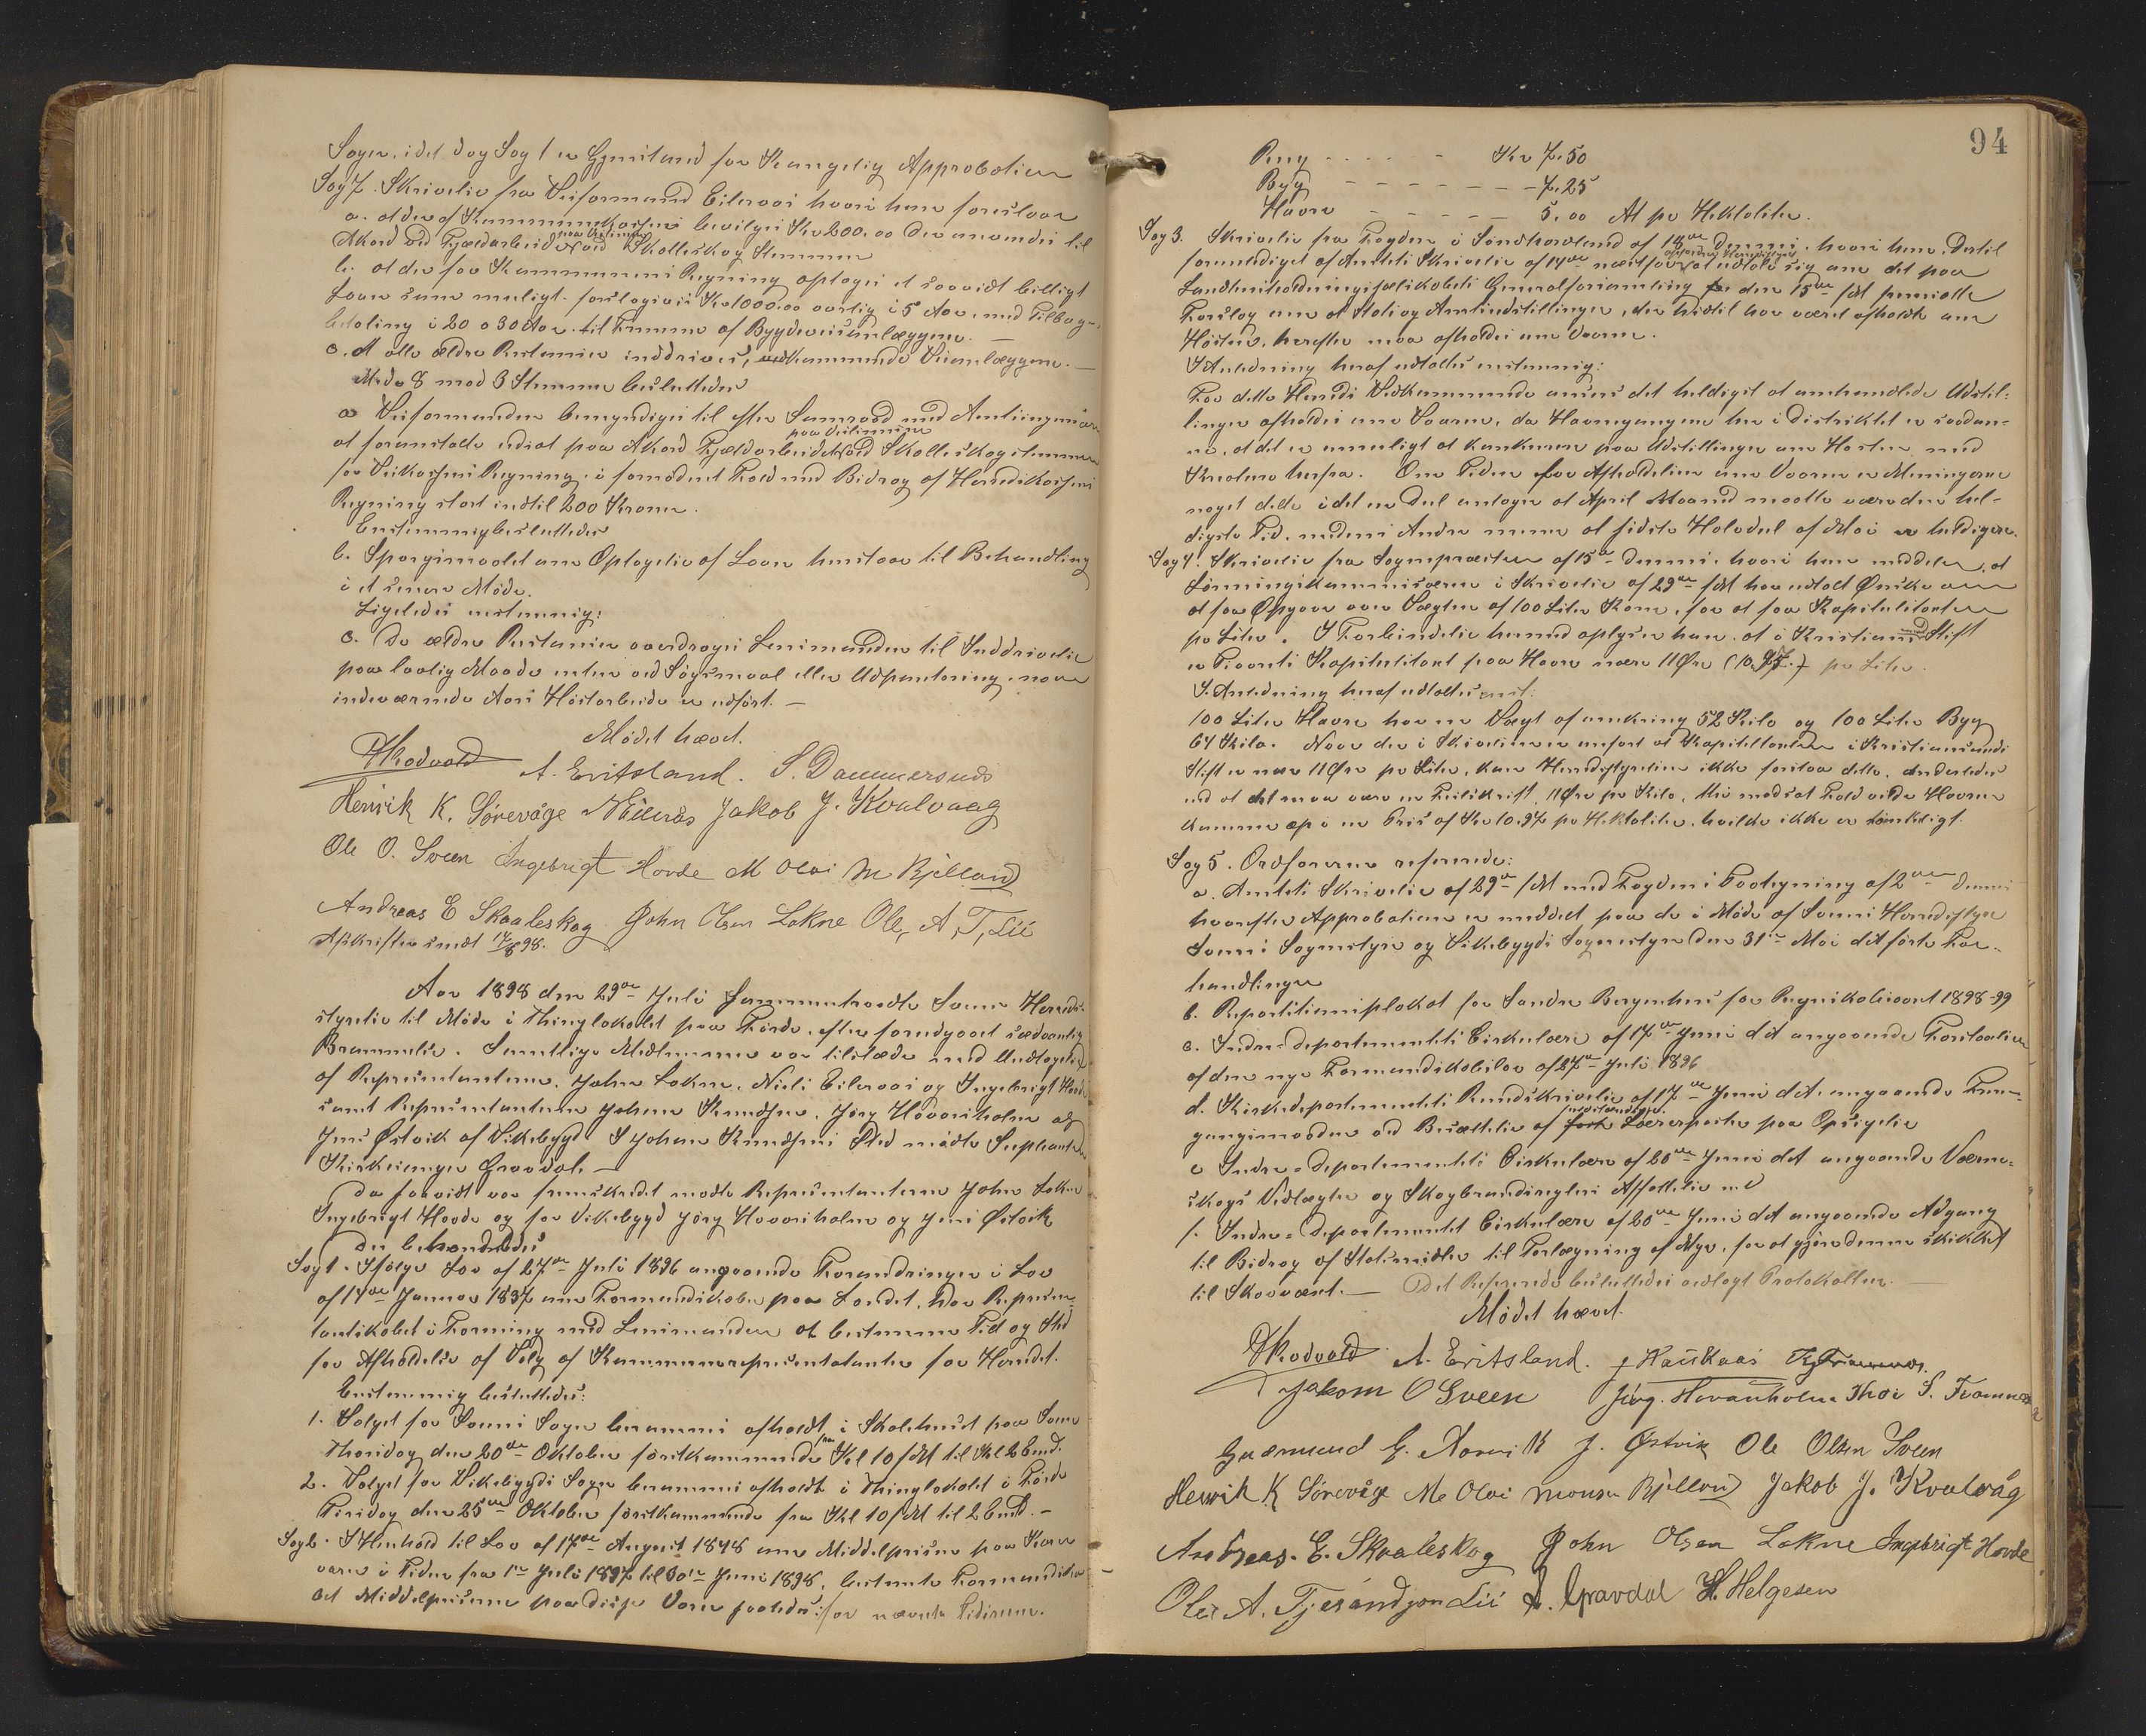 Sogn, idet dog Sag 1 er Gjenstand for Kongelig Approbation
Sag 7. Skrivelse fra Veiformand Eilevoi hvori han foreslaar
a. at der af Kommunekassen bevilges Kr 200.00 der anvendes til
Akord ved Fjældarbeide paa Veilinien ved Skolleskog Stemmen
b. at der for Kommunens Regning optages et saavidt billigt
Laan som muligt. foreslagsvis Kr 1000.00 aarlig i 5 Aar, med Tilbage-
betaling i 20 a 30 Aar til Fremme af Bygdeveisanlæggene. —
c. At alle ældre Restancer inddrives, vedkommende Veianlæggene. —
Med 8 mod 3 Stemmer besluttedes
a. Veiformanden bemyndiges til efter Samraad med Amtsingeniøren
at foranstalte udsat paa Akord Fjeldarbeidet paa Veilinien ved Skolleskogstemmen
for Veikassens Regning, i fornødent Fald med Bidrag af Herredskassens
Regning stort indtil 200 Kroner.
Enstemmig besluttedes
b. Spørgsmaalet om Optagelse af Laan henstaar til Behandling
i et senere Møde.
Ligeledes enstemmig:
c. De ældre Restancer overdrages Lensmanden til Inddrivelse
paa lovlig Maade enten ved Søgsmaal eller Udpantning, naar
indeværende Aars Høstarbeide er udført. —
Mødet hævet.
A. Eritsland. S. Dammersnds
Henrik K. Sørevåge Jakob J. Kvalvaag
Ole O. Sveen Ingebrigt Hovde M Olai M Bjelland
Andreas E Skaaleskog John Olsen Lokne Ole, A, T, Lii
Afskrifter sendt 17/8 98.
Aar 1898 den 29de Juli sammentraadte Sømme Herreds-
styrelse til Møde i Thinglokalet paa Førde, efter forudgaaet sædvanlig
Brammelse. Samtlige Medlemmer var tilstæde med Undtagelse
af Repræsentanterne, John Lokne, Niels Eilevoi og Ingebrigt Hovde
samt Repræsentanterne Johan Knudsen, Jørg Hovansholm og
Jens Østvik af Vikebygd. I Johan Knudsens Sted mødte Supleanten
Kirkesanger Gravdal. —
Da saavidt var fremskredet mødte Repræsentanterne John Lokne
Ingebrigt Hovde og for Vikebygd Jørg Hovansholm og Jens Østvik
Der behandledes
Sag 1. Ifølge Lov af 27de Juli 1896 angaaende Forandringer i Lov
af 14de Januar 1837 om Formandskaber paa Landet, har Repræsen-
tantskabet i Forening med Lensmanden at bestemme Tid og Sted
for Afholdelse af Valg af Kommunerepræsentatanter for Herredet.
Enstemmig besluttedes:
1. Valget for Sogn berammes afholdt i Skolehuset paa
Thorsdag den 20de Oktober førstkommende fra Kl 10 fM til Kl 2 Emd.
2. Valget for Vikebygds Sogn berammes afholdt i Thinglokalet i Førde
Tirsdag den 25de Oktober førstkommende fra Kl 10 fM til 2 Emd. —
Sag 2. I Henhold til Lov af 17de August 1848 om Middelprisen paa Korn
varer i Tiden fra 1ste Juli 1897 til 30te Juni 1898, bestemte Formandskabet
at Middelpriserne paa disse Varer saaledes: for nævnte Tidsrum.
94
Rug - - - - - Kr 7.50
Byg - - - - - - - 7.25
Havre - - - - - 5.00 Alt pr Hektoliter.
Sag 3. Skrivelse fra Fogden i Søndhordland af 18de dennes, hvori han, dertil
foranlediget af Amtets Skrivelse af 14de næstfør anmoder Herredsstyret at udtale sig om det paa
Landhusholdningsselskabets Generalforsamling den 15de fM fremsatte
Forslag om at Stats og Amtsudstillinger, der hidtil har været afholdt om
Høsten, herefter maa afholdes om Vaaren.
I Anledning heraf udtaltes enstemmig:
For dette Herreds Vedkommende ansees det heldigst at omhandlede Udstil-
linger afholdes om Vaaren, da Havnegangene her i Distriktet er saadan-
ne, at det er umuligt at konkurrere paa Udstillinger om Høsten med
Kreature herfra. Om Tiden for Afholdelsen om Vaaren er Meningerne
noget delte idet en Del antager at April Maaned maatte være den hel-
digste Tid, medens Andre mene at sidste Halvdel af Mai er heldigere.
Sag 4. Skrivelse fra Sognepræsten af 15de dennes, hvori han meddeler, at
Lønningskommissionen i Skrivelse af 29de fM har udtalt Ønske om
at faa Opgave over Vægten af 100 Liter Korn, for at faa Kapitelstaksten
pr Liter. I Forbindelse hermed oplyser han, at i Kristiansands Stift
er Fjorårets Kapitelstakst paa Havre nær 11 Øre (10.97.) pr Liter.
I Anledning heraf udtaltes enst:
100 Liter Havre har en Vægt af omkring 52 Kilo og 100 Liter Byg
64 Kilo. Naar der i Skrivelsen er anført at Kapitelstaksten i Kristiansands
Stift er nær 11 Øre pr Liter, kan Herredsstyrelsen ikke forstaa dette, anderledes
end at det maa være en Feilskrift, 11 Øre pr Kilo. Thi modsat Fald vilde Havren
komme op i en Pris af Kr 10.97 pr Hektoliter, hvilket ikke er tænkeligt.
Sag 5. Ordføreren refererede:
a. Amtets Skrivelse af 29de fM med Fogdens Paategning af 2den dennes
hvorefter Approbation er meddelt paa de i Møde af Herredsstyre
Sognestyre og Vikebygds Sognestyre den 31te Mai d.A. førte For-
handlinger
b. Repartitionsplakat for Søndre Bergenhus for Regnskabsaaret 1898-99
c. Indre-departementets Cirkulære af 17de Juni d.A. angaaende Forstaaelsen
af den nye Formandskabslov af 27de Juli 1896
d. Kirkedepartementets Rundskrivelse af 17de Juni d.A. angaaende Frem-
gangsmaaden ved Besættelse af Lærerposter paa Opsigelse
e. Indre-departementets Cirkulære af 20de Juni d.A. angaaende Værne-
skogs Vedtægter og Skogbrandsreglers Affattelse m.v
f. Indre-departementets Cirkulære af 20de Juni d.A. angaaende Adgang
til Bidrag af Statsmidler til Tørlægning af Myr, for at gjøre denne skikket
til Skovvext. — Det Refererede besluttedes vedlagt Protokollen.
Mødet hævet.
A. Eritsland. J Hauskaas
Jakom O Sveen Jørg. Hovansholm Thor S. Tvamnes
Gudmund G. J. Østvik Ole Olsen Sveen
Henrik K Sørevåge M Olai Mons Bjelland Jakob J. Kvalvåg
Andreas. E. Skaaleskog John Olsen Lokne Ingebrigt Hovde
Ole A. Tjerandsen Lii A. Gravdal H. Helgesen